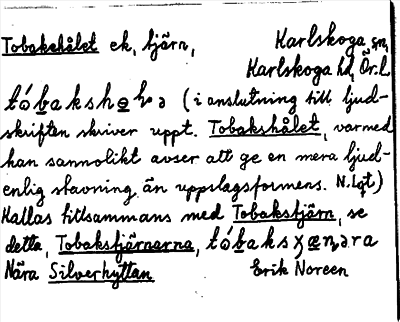 Tobakshålet ek, tjärn, Karlskoga sn,
Karlskoga hd, Ör. l.
(i anslutning till ljud-
skriften skriver uppt. Tobakshålet, varmed
han sannolikt avser att ge en mera ljud-
enlig stavning än uppslagsformens. N. Lgt)
Kallas tillsammans med Tobakstjärn, se
detta, Tobakstjärnarna,
Nära Silverhyttan Erik Noreen